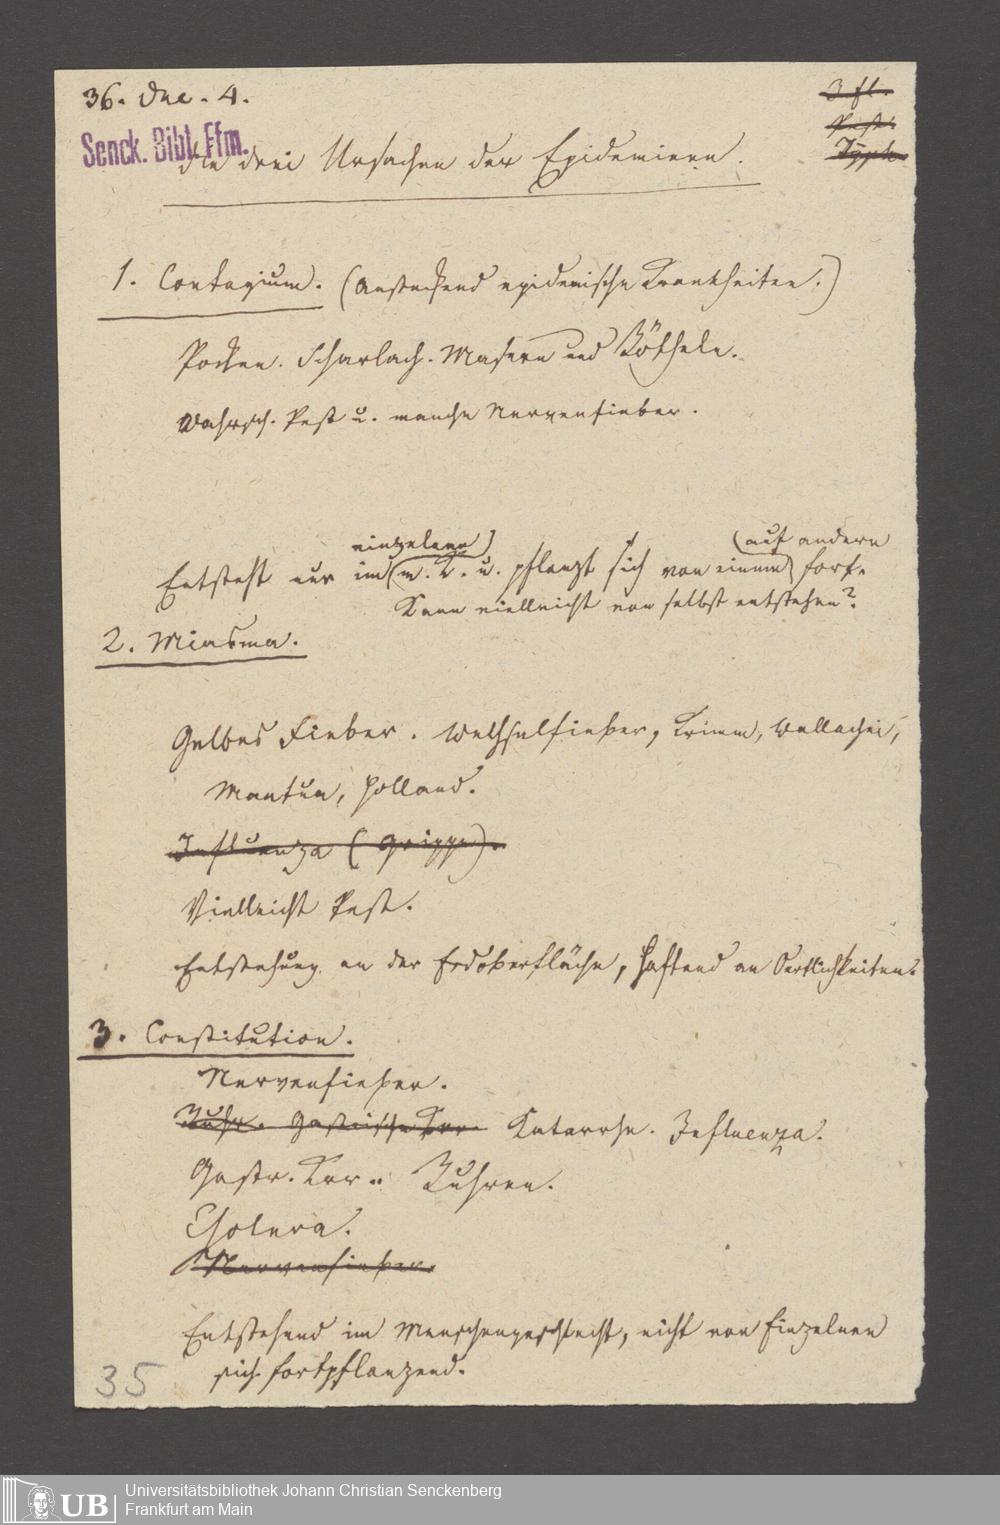 36. Dec. 4.
Senck. Bibl. Ffm.
Die drei Ursachen der Epidemieen.
Infl.
Pest.
Typh.
1. Contagium. (Ansteckend epidemische Krankheiten.)
Pocken. Scharlach. Masern und Rötheln.
Wahrsch. Pest u. manche Nervenfieber.
einzelnen auf andern
Entsteht nur im m. K. u. pflanzt sich von einem fort.
Kann vielleicht von selbst entstehen?
2. Miasma.
Gelbes Fieber. Wechselfieber, Krimm, Wallachei,
Mantua, Holland.
Influenza (Grippe).
Vielleicht Pest.
Entstehung an der Erdoberfläche, haftend an Oertlichkeiten.
3. Constitution.
Nervenfieber.
Ruhr. Gastrische Kkr. Katarrhe. Influenza.
Gastr. Kkr. Ruhren.
Cholera.
Nervenfieber.
Entstehend im Menschengeschlecht, nicht von Einzelnen
sich fortpflanzend.
35
UB
Universitätsbibliothek Johann Christian Senckenberg
Frankfurt am Main